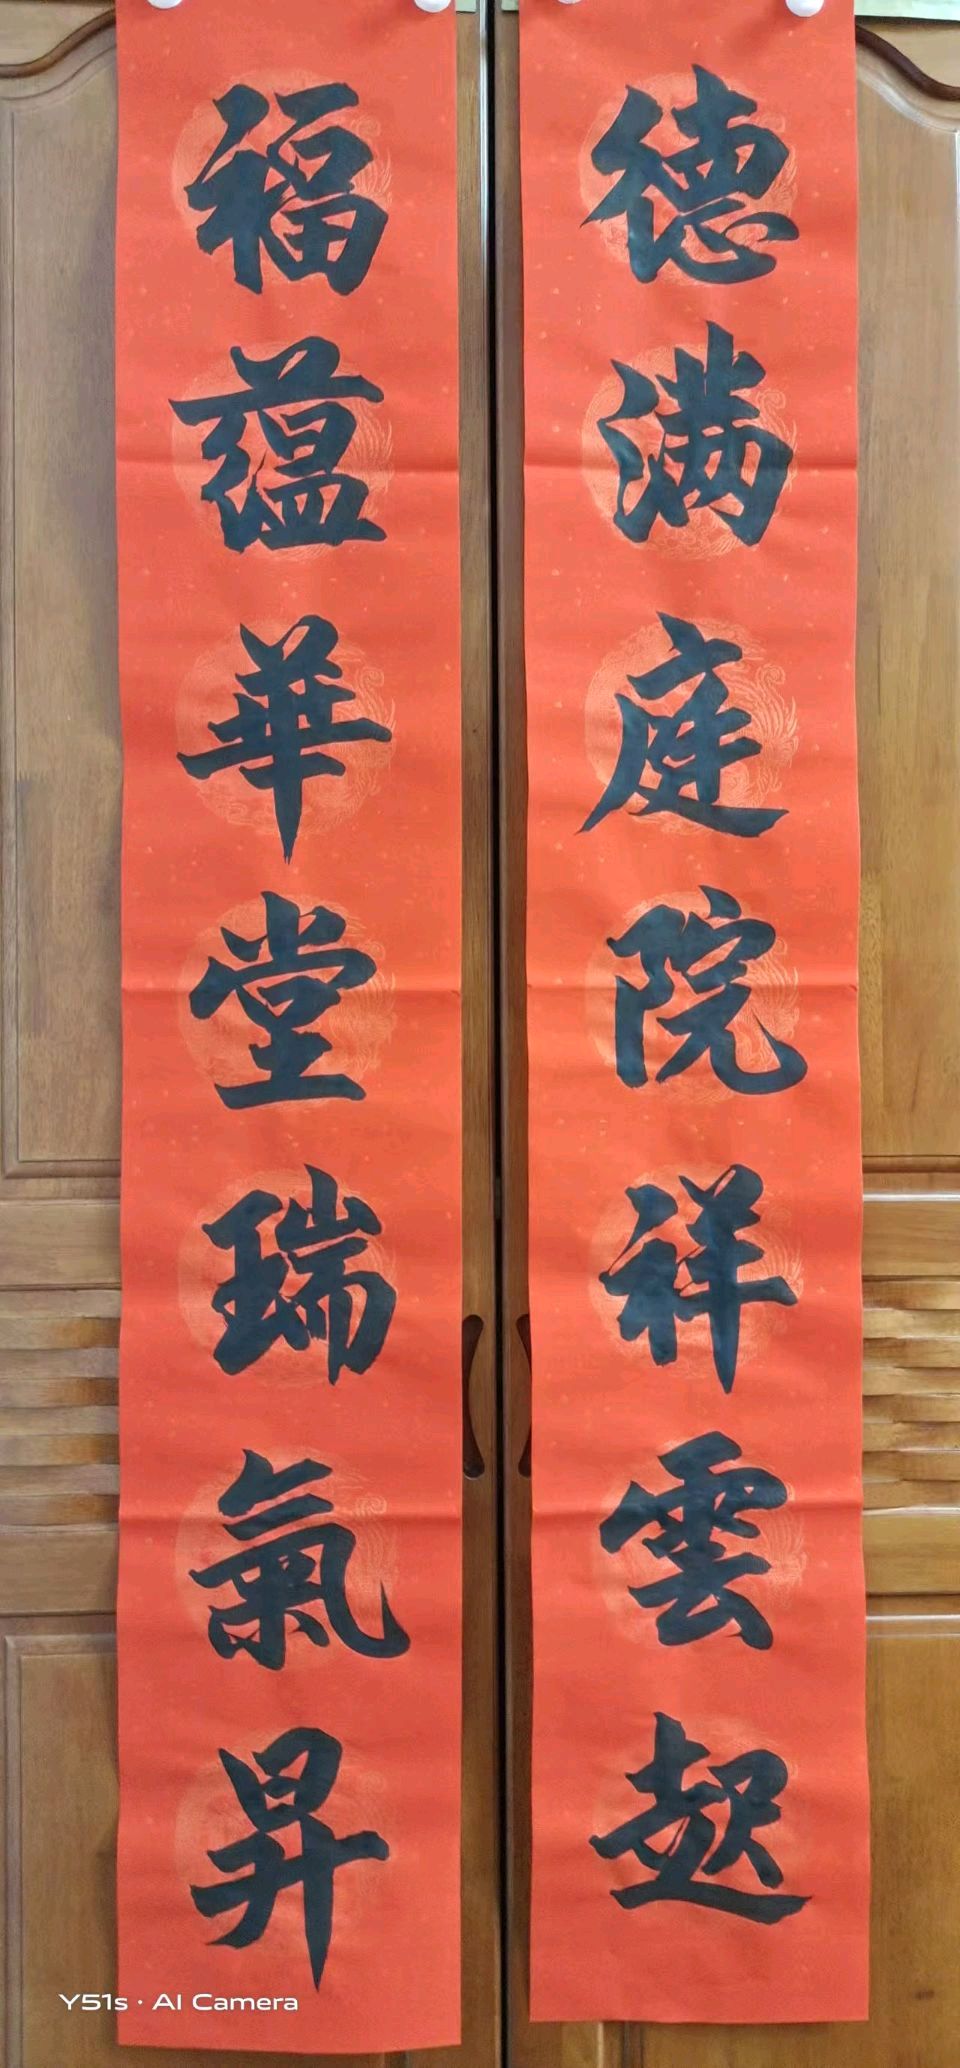 德满庭院祥雲起
福蕴華堂瑞氣昇
Y51s · AI Camera